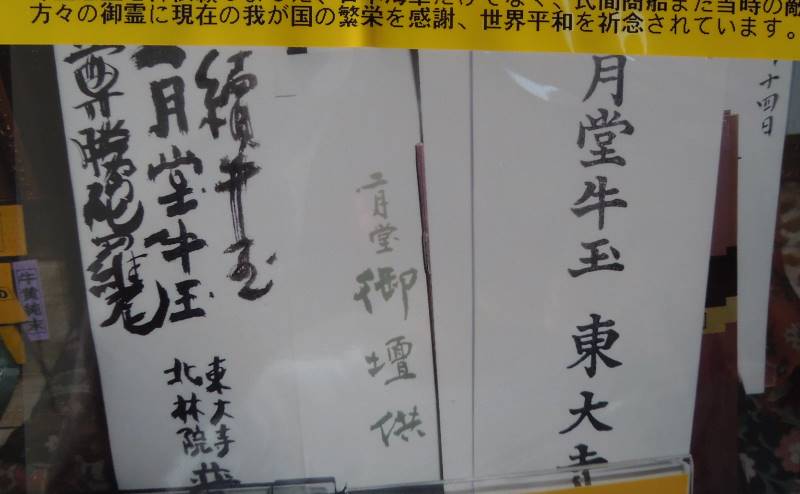 方々の御霊に現在の我が国の繁栄を感謝、世界平和を祈念されています。
十四日
月堂牛玉 東大寺
二月堂
御壇供
續牛玉
二月堂牛玉
尊勝陀羅尼
東大寺
北林院
牛黄純末